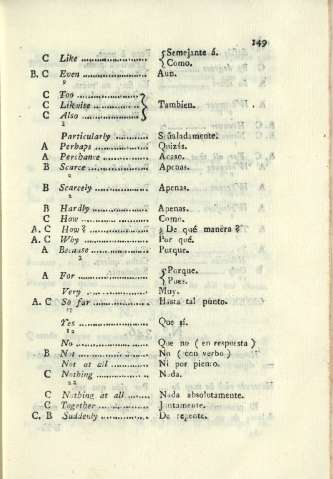 149
C Like .................. { Semejante á.
Como.
B. C Even .................. Aun.
9
C Too ..................
C Likwise .................. } Tambien.
C Also ..................
2
Particularly .......... Señaladamente.
A Perhaps .................. Quizás.
A Perchance .................. Acaso.
B Scarce .................. Apenas.
B Scarcely .................. Apenas.
B Hardly .................. Apenas.
C How .................. Como.
A. C How? .................. ¿ De qué manera ?
A. C Why .................. Por qué.
A Because .................. Porque.
2
A For .................. { Porque.
Pues.
Very .................. Muy.
A. C So far .................. Hasta tal punto.
17
Yes .................. Que sí.
12
No .................. Que no ( en respuesta )
B Not .................. No ( con verbo )
Not at all .................. Ni por pienso.
C Nothing .................. Nada.
22
C Nothing at all ........ Nada absolutamente.
C Together .................. Juntamente.
C, B Suddenly .................. De repente.